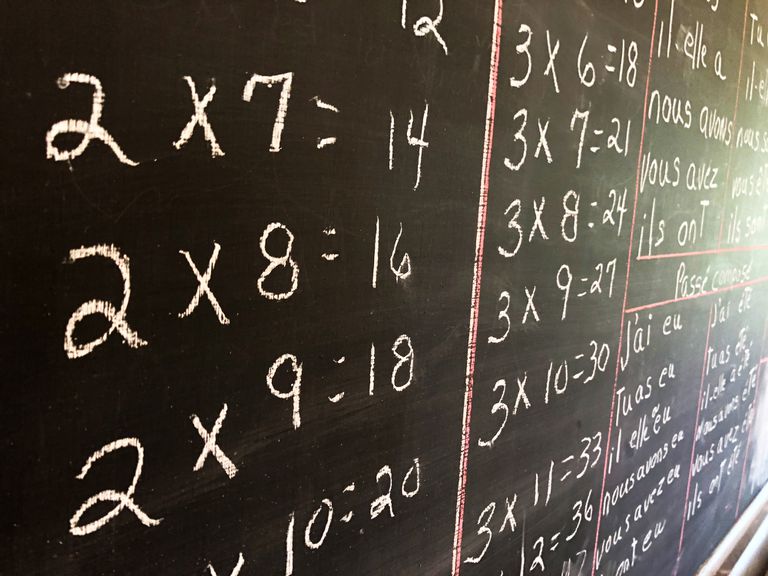 12
2 x 7 = 14
2 x 8 = 16
2 x 9 = 18
x 10 = 20
3 x 6 = 18
3 x 7 = 21
3 x 8 = 24
3 x 9 = 27
3 x 10 = 30
3 x 11 = 33
12 = 36
il elle a
nous avons
vous avez
ils ont
Tu
il-el
nous s
vous ête
ils sont
Passé composé
J'ai eu
Tu as eu
il elle eu
nous avons eu
vous avez eu
ont eu
J'ai été
Tu as été
il-elle a été
Nous avons été
vous avez été
ils ont été